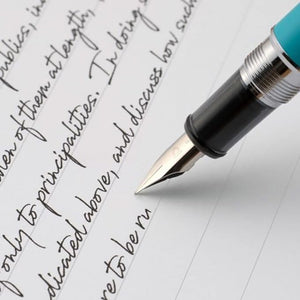 publics, in
en of them at length,
f only to principalities. In doing s
dicated above, and discuss how such
re to be ru